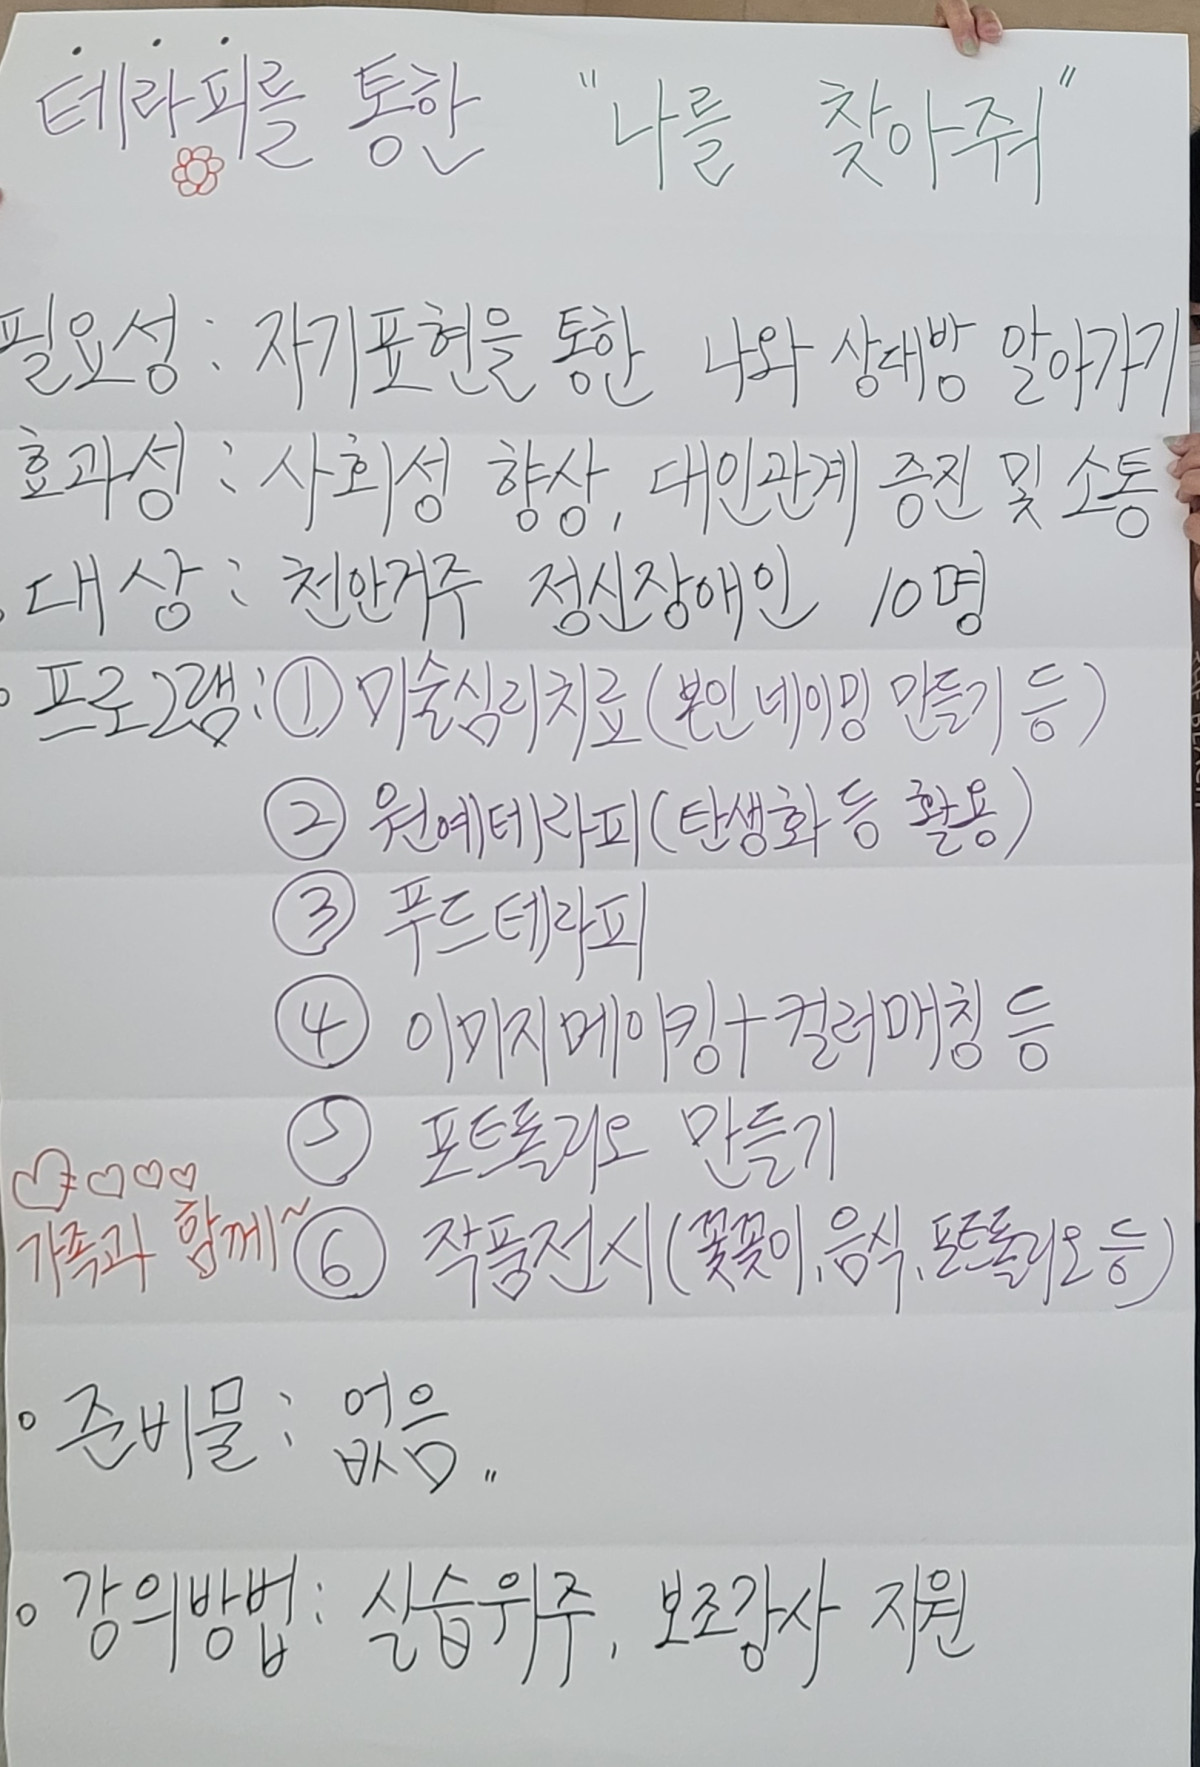 테라피를 통한 "나를 찾아줘"
필요성 : 자기표현을 통한 나와 상대방 알아가기
효과성 : 사회성 향상, 대인관계 증진 및 소통
대상 : 천안거주 정신장애인 10명
프로그램 : ① 미술심리치료(본인 네이밍 만들기 등)
② 원예테라피(탄생화 등 활용)
③ 푸드테라피
④ 이미지메이킹+컬러매칭 등
⑤ 포트폴리오 만들기
가족과 함께~
⑥ 작품전시(꽃꽂이, 음식, 포트폴리오 등)
준비물 : 없음
강의방법 : 실습위주, 보조강사 지원